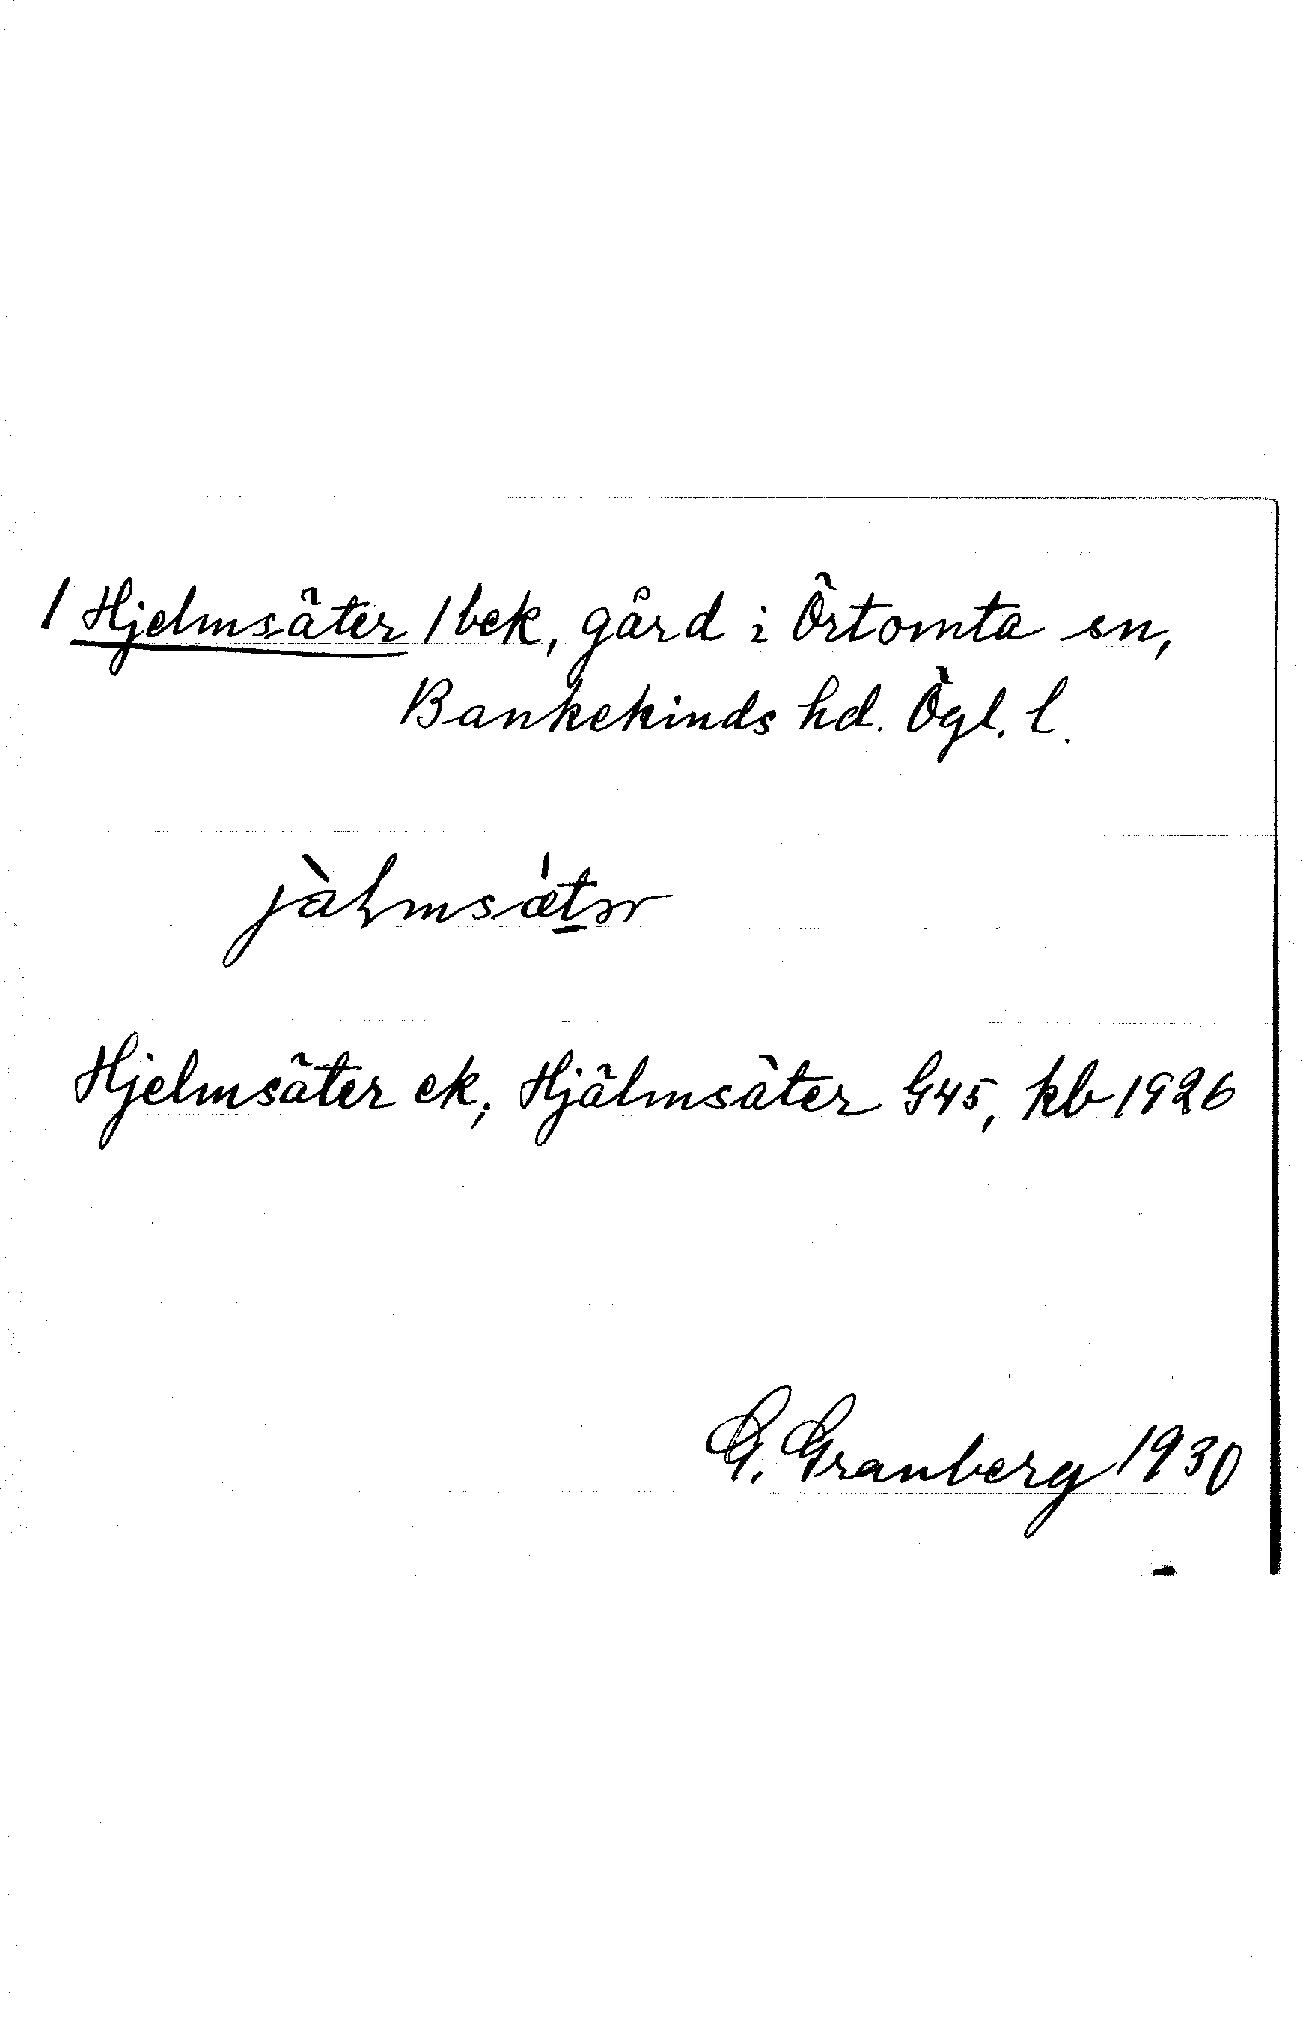 / Hjelmsäter / bek, gård i Örtomta sn,
Bankekinds hd. Ögl. l.
jàlmsǽtər
Hjelmsäter ek, Hjälmsäter G45, kb 1926
G. Granberg 1930